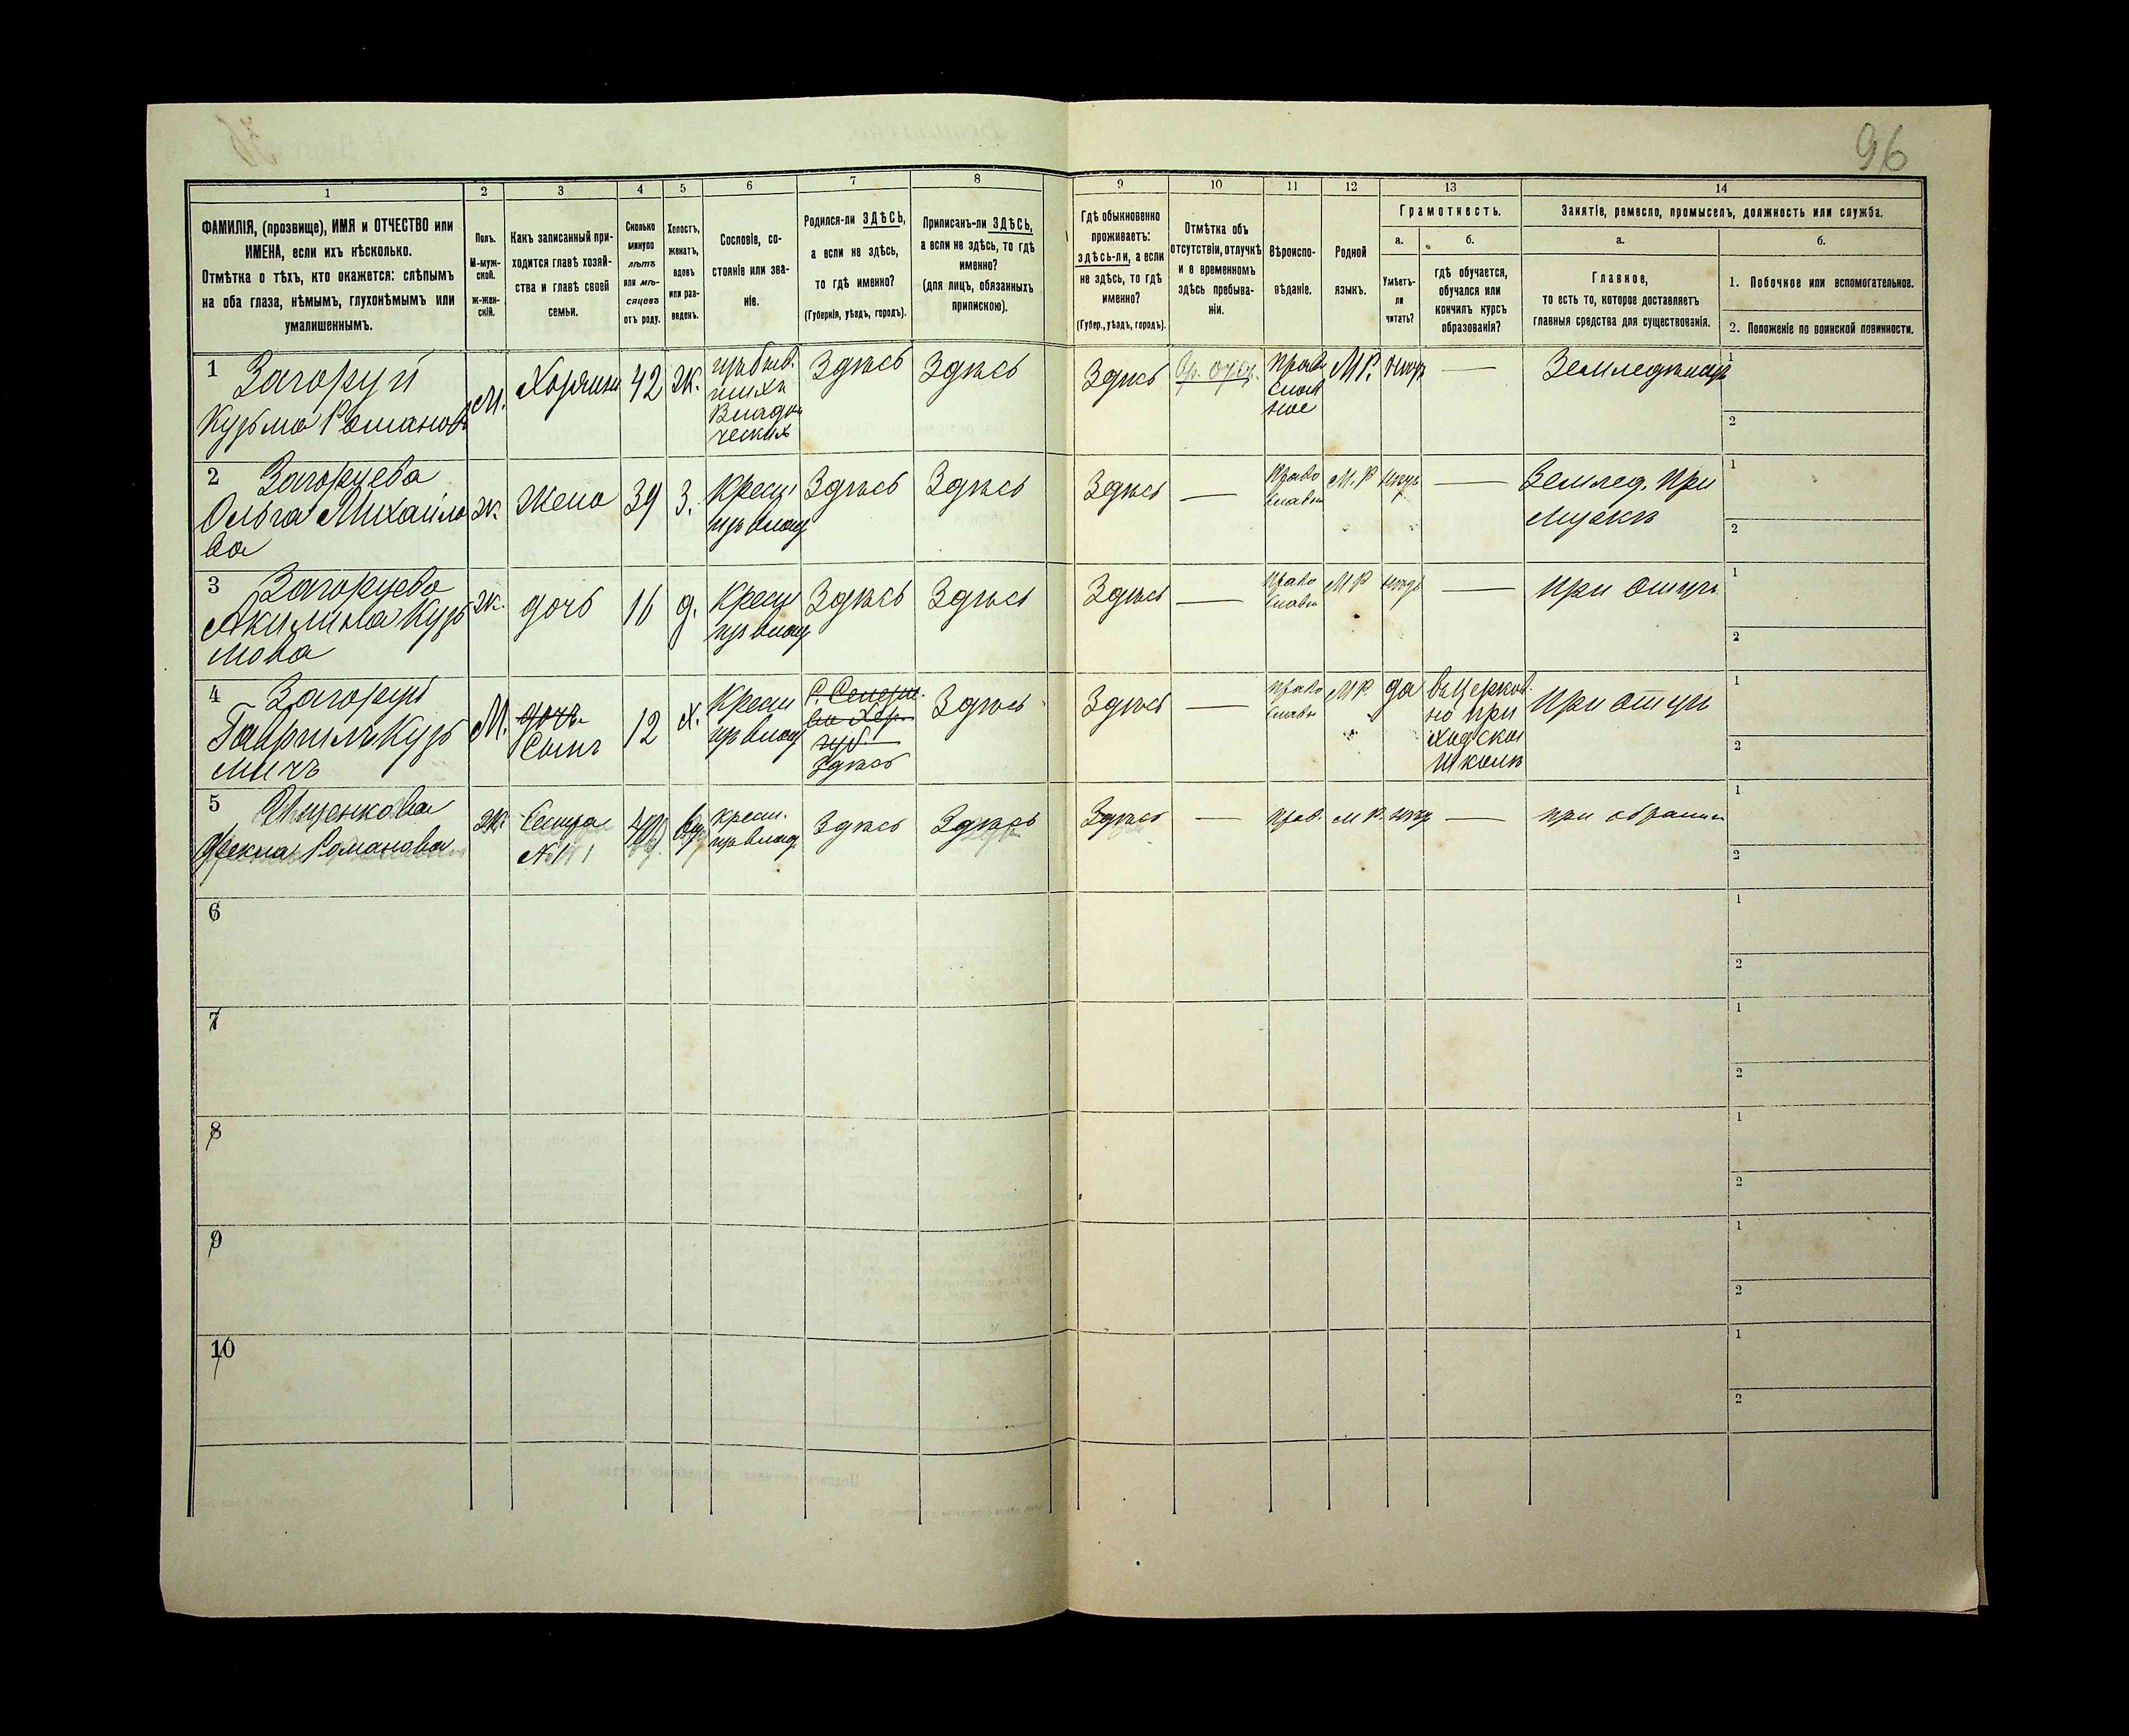 96
1 2 3 4 5 6 7 8 9 10 11 12 13 14
ФАМИЛІЯ, (прозвище), ИМЯ и ОТЧЕСТВО или
ИМЕНА, если ихъ нѣсколько.
Отмѣтка о тѣхъ, кто окажется: слѣпымъ
на оба глаза, нѣмымъ, глухонѣмымъ или
умалишеннымъ.
Полъ.
М-муж-
ской.
ж-жен-
скій.
Какъ записанный при-
ходится главѣ хозяй-
ства и главѣ своей
семьи.
Сколько
минуло
лѣтъ
или мѣ-
сяцевъ
отъ роду.
Холостъ,
женатъ,
вдовъ
или раз-
веденъ.
Сословіе, со-
стояніе или зва-
ніе.
Родился-ли ЗДѢСЬ,
а если не здѣсь,
то гдѣ именно?
(Губернія, уѣздъ, городъ).
Приписанъ-ли ЗДѢСЬ,
а если не здѣсь, то гдѣ
именно?
(для лицъ, обязанныхъ
припискою).
Гдѣ обыкновенно
проживаетъ:
здѣсь-ли, а если
не здѣсь, то гдѣ
именно?
(Губер., уѣздъ, городъ).
Отмѣтка объ
отсутствіи, отлучкѣ
и о временномъ
здѣсь пребыва-
ніи.
Вѣроиспо-
вѣданіе.
Родной
языкъ.
Грамотность.
а.
Умѣетъ-
ли
читать?
б.
гдѣ обучается,
обучался или
кончилъ курсъ
образованія?
Занятіе, ремесло, промыселъ, должность или служба.
а.
Главное,
то есть то, которое доставляетъ
главныя средства для существованія.
б.
1. Побочное или вспомогательное.
2. Положеніе по воинской повинности.
1 Загоруй
Кузьма Романовъ
М.
Хозяинъ
42
Ж.
Здѣсь
Здѣсь
Здѣсь
Право
слав
ное
М Р.
Земледѣлецъ
1
2
2 Загоруева
Ольга Михайло
ва
Ж.
Жена
39
З.
Крест
изъ влад
Здѣсь
Здѣсь
Здѣсь
—
Право
славн
М. Р
—
Землед. При
мужѣ
1
2
3 Загоруева
Акилина Кузь
мова
Ж.
дочь
16
д.
Крест
изъ влад
Здѣсь
Здѣсь
Здѣсь
—
Право
славн
М Р
—
при отцѣ
1
2
4 Загоруй
Гавриилъ Кузь
мичъ
М.
дочь
Сынъ
12
Х.
Крест
изъ влад
Здѣсь
Здѣсь
Здѣсь
—
Право
славн
М Р.
да
въ Церков
но при
ходской
школѣ
при отцѣ
1
2
5 Ищенкова
Фекла Романова
Ж.
Сестра
№ 1
крест.
изъ влад
Здѣсь
Здѣсь
Здѣсь
—
Прав.
М Р.
—
при
1
2
6
1
2
7
1
2
8
1
2
9
1
2
10
1
2